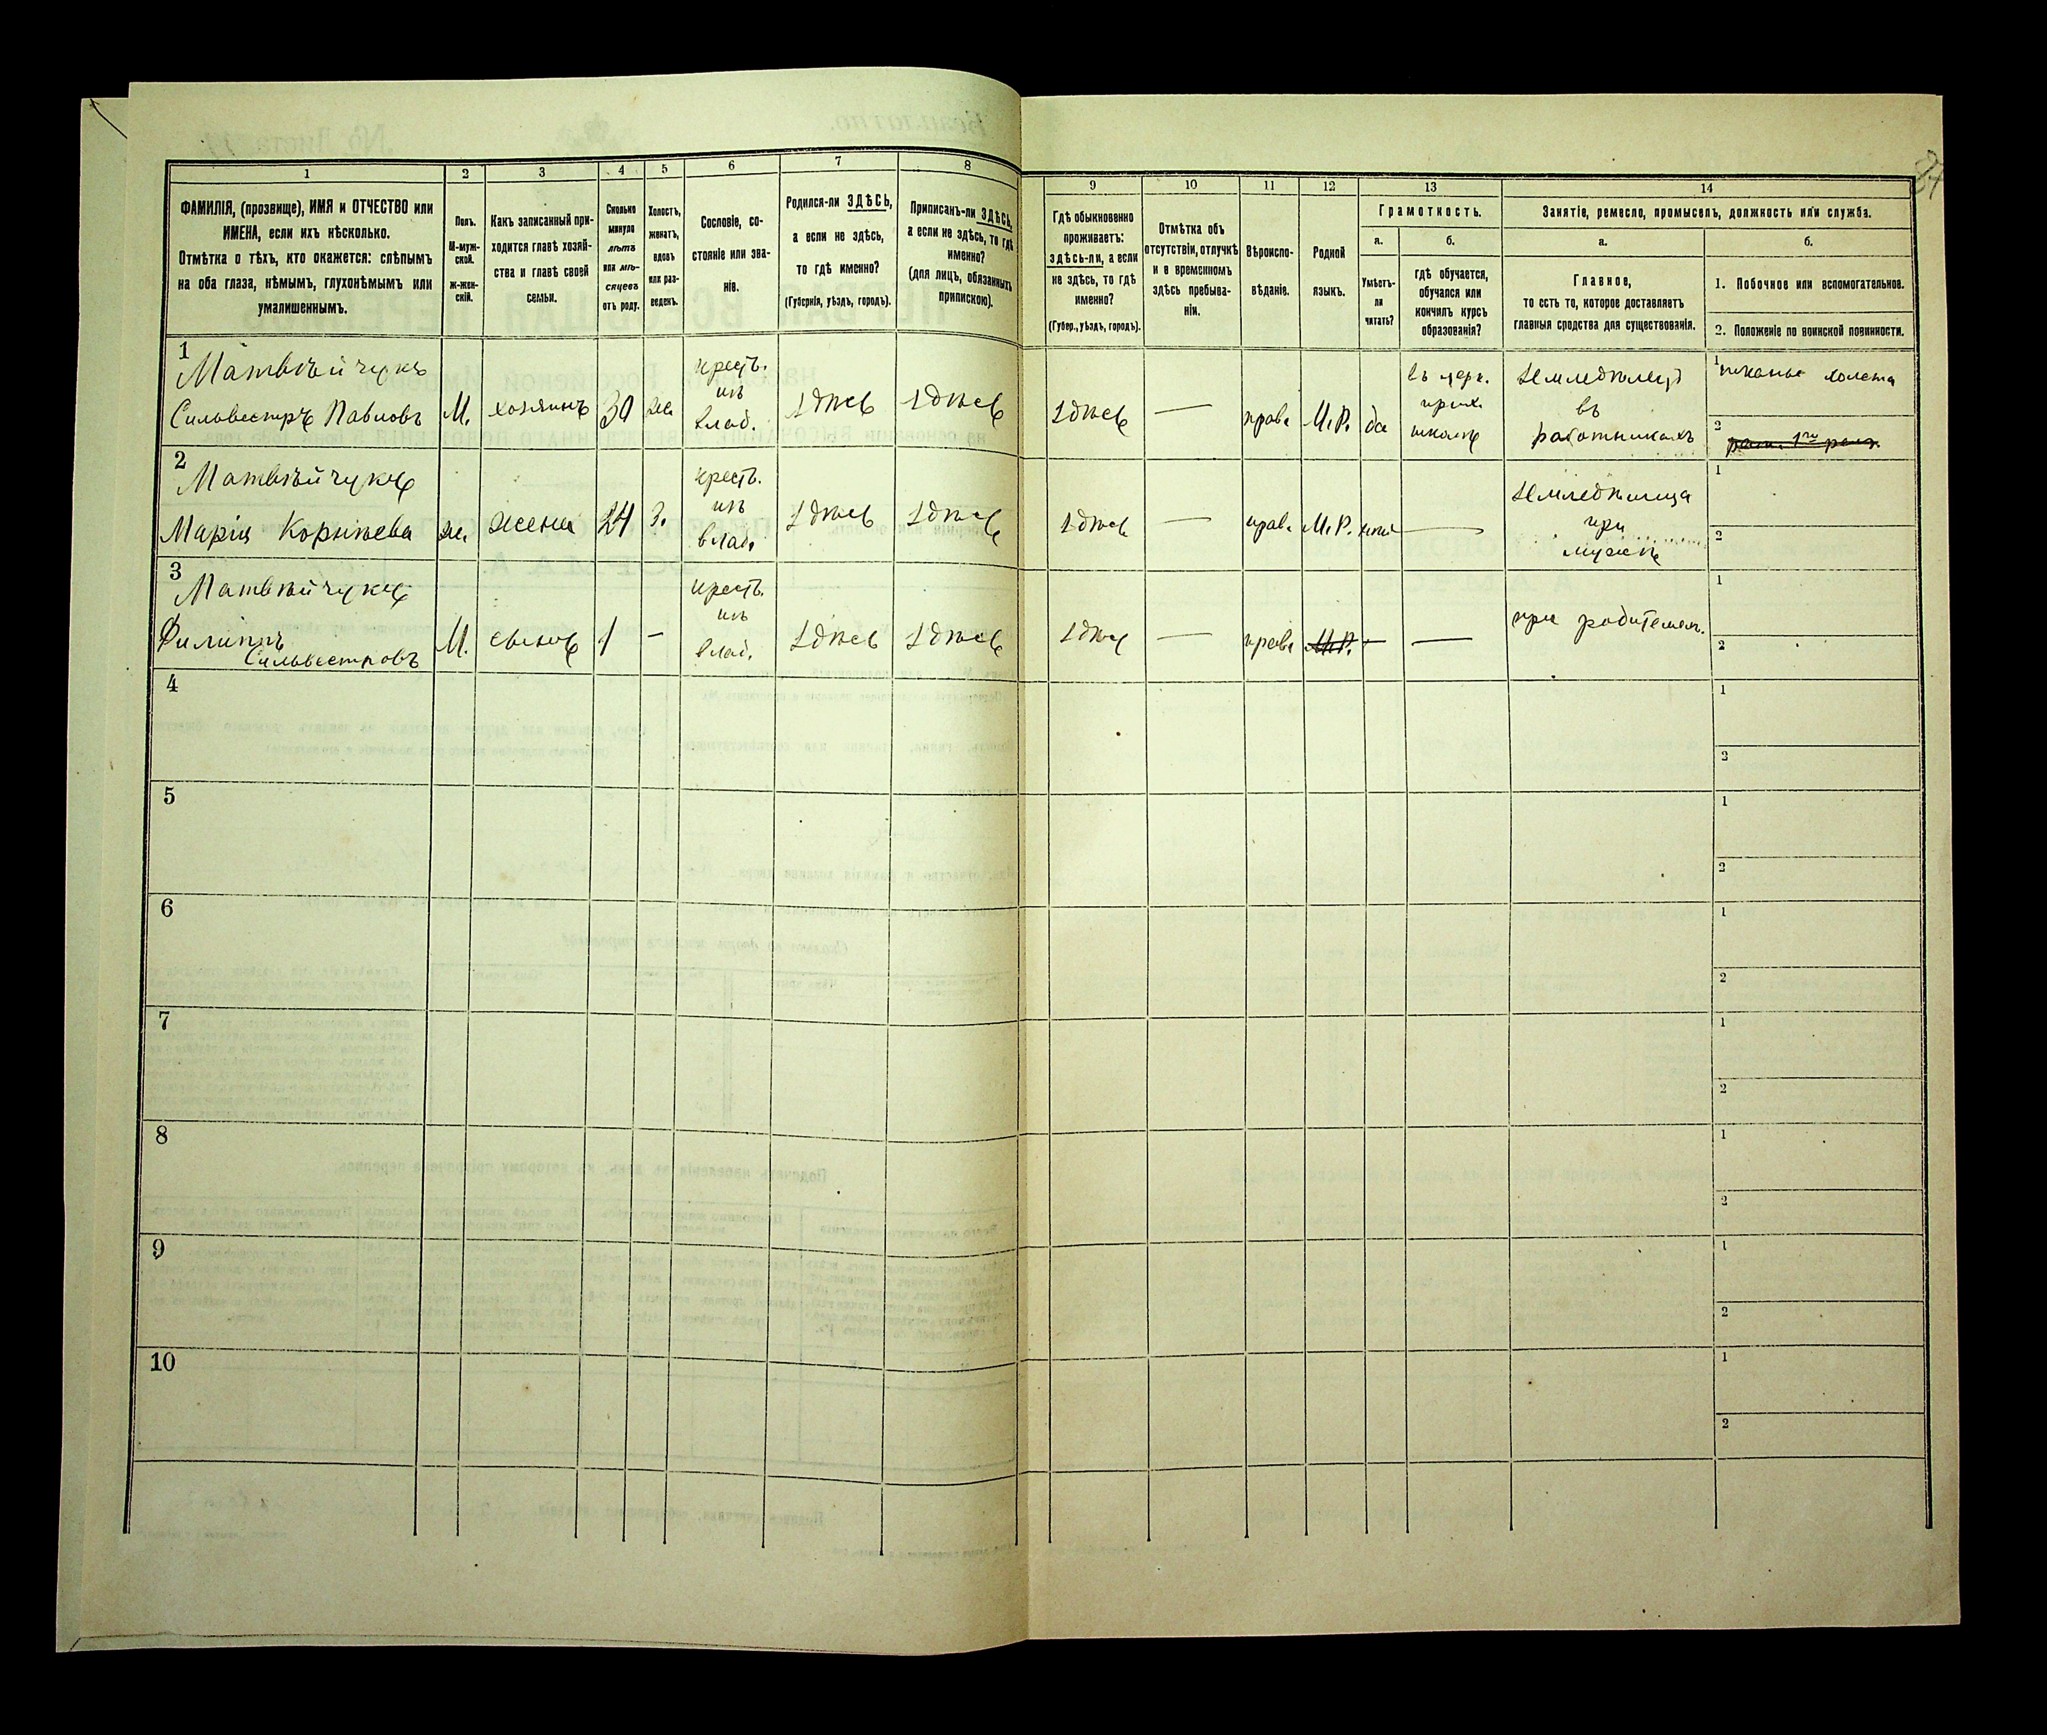 1 2 3 4 5 6 7 8 9 10 11 12 13 14
ФАМИЛІЯ, (прозвище), ИМЯ и ОТЧЕСТВО или
ИМЕНА, если ихъ нѣсколько.
Отмѣтка о тѣхъ, кто окажется: слѣпымъ
на оба глаза, нѣмымъ, глухонѣмымъ или
умалишеннымъ.
Полъ.
М-муж-
ской.
ж-жен-
скій.
Какъ записанный при-
ходится главѣ хозяй-
ства и главѣ своей
семьи.
Сколько
минуло
лѣтъ
или мѣ-
сяцевъ
отъ роду.
Холостъ,
женатъ,
вдовъ
или раз-
веденъ.
Сословіе, со-
стояніе или зва-
ніе.
Родился-ли ЗДѢСЬ,
а если не здѣсь,
то гдѣ именно?
(Губернія, уѣздъ, городъ).
Приписанъ-ли ЗДѢСЬ,
а если не здѣсь, то гдѣ
именно?
(для лицъ, обязанныхъ
припискою).
Гдѣ обыкновенно
проживаетъ:
здѣсь-ли, а если
не здѣсь, то гдѣ
именно?
(Губер., уѣздъ, городъ).
Отмѣтка объ
отсутствіи, отлучкѣ
и о временномъ
здѣсь пребыва-
ніи.
Вѣроиспо-
вѣданіе.
Родной
языкъ.
Грамотность.
а.
Умѣетъ-
ли
читать?
б.
гдѣ обучается,
обучался или
кончилъ курсъ
образованія?
Занятіе, ремесло, промыселъ, должность или служба.
а.
Главное,
то есть то, которое доставляетъ
главныя средства для существованія.
б.
1. Побочное или вспомогательное.
2. Положеніе по воинской повинности.
1
Матвѣйчукъ
Сильвестръ Павловъ
М.
хозяинъ
30
же.
крест.
изъ
влад.
здѣсь
здѣсь
здѣсь
—
прав.
М.Р.
да
въ церк.
прих.
школѣ
Земледѣлец
въ
работникахъ
1 тканье холста
2
2
Матвѣйчукъ
Марія Корнѣева
же.
жена
24
з.
крест.
изъ
влад.
здѣсь
здѣсь
здѣсь
—
прав.
М.Р.
—
Земледѣлица
при
мужѣ
1
2
3
Матвѣйчукъ
Филиппъ
Сильвестровъ
М.
сынъ
1
—
крест.
изъ
влад.
здѣсь
здѣсь
здѣсь
—
прав.
М.Р.
—
—
при родителях.
1
2
4
1
2
5
1
2
6
1
2
7
1
2
8
1
2
9
1
2
10
1
2